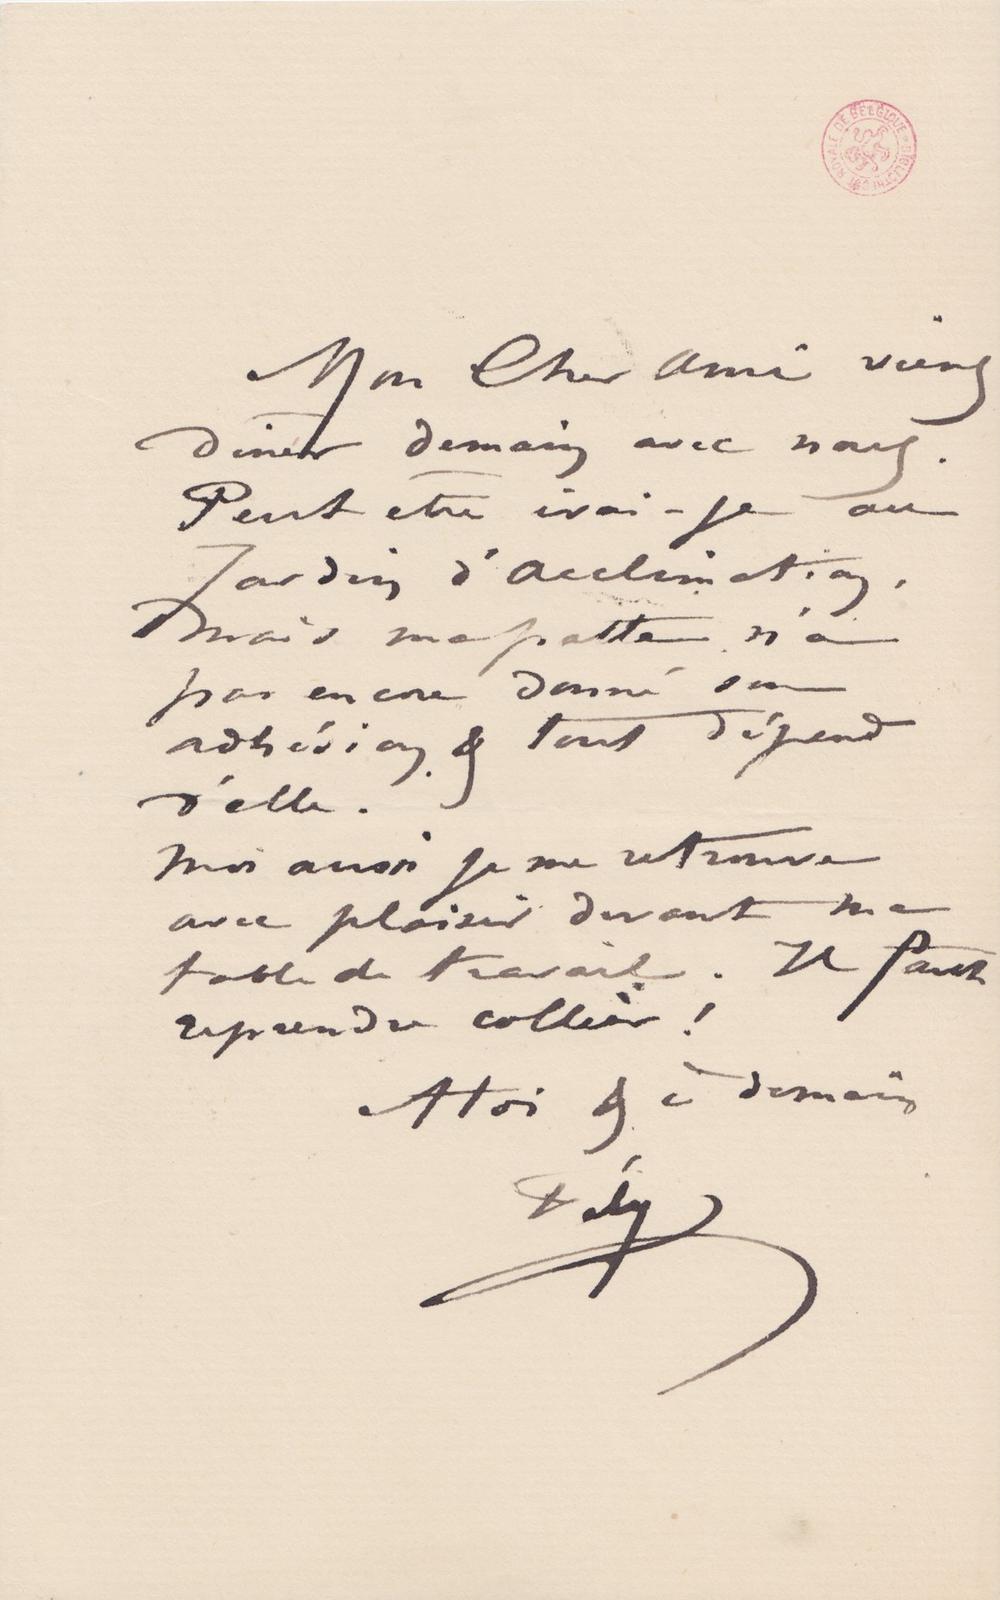 BIBLIOTHÈQUE ROYALE DE BELGIQUE
Mon Cher Ami viens
diner demain avec nous.
Peut etre irai-je au
Jardin d'Acclimation,
mais ma patte n'a
pas encore donné son
adhésion & tout dépend
d'elle.
Moi aussi je me retrouve
avec plaisir devant ma
table de travail. Il faut
reprendre collier !
A toi & à demain
Fély